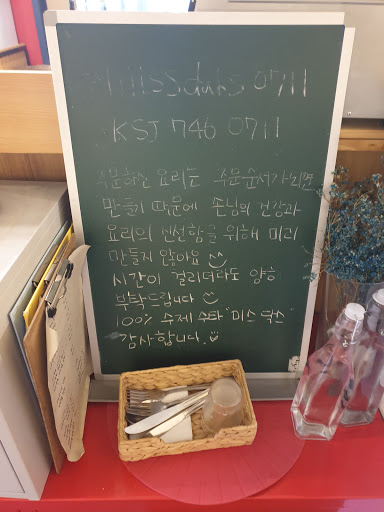 missduks 0711
KSJ 746 0711
주문하신 요리는 주문순서가되면
만들기 때문에 손님의 건강과
요리의 신선함을 위해 미리
만들지 않아요
시간이 걸리더라도 양해
부탁드립니다
100% 수제 수타 "미스 덕스"
감사합니다.